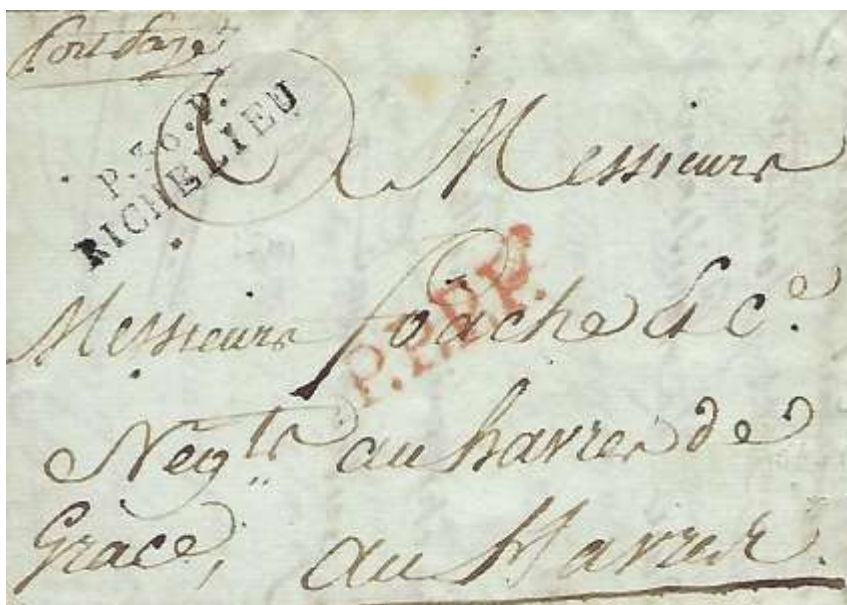 Port payé
P.36.P.
RICHELIEU
Messieurs
P.P.P.P.
Messieurs foâche & Cᵉ.
Negᵗˢ au havre de
Grace,
au Havre